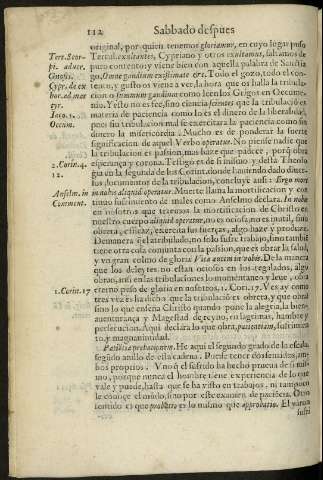 112 Sabbado despues
original, por quien tenemos gloriamur, en cuyo lugar puso
Tert. Scor- Tertul. exultantes, Cypriano y otros exultantes, saltamos de
pe. aduer. puro contento: y viene bien con aquella palabra de Sanctia
Gnosti. go, Omne gaudium existimate &c. Todo el gozo, todo el con-
Cypr. de ex tento, y gusto os viene a ver, la hora que os halla la tribula-
hor. ad mar cion o summum gaudium como leen los Griegos en Oecume-
tyr. nio. Y esto no es fee, sino ciencia scientes que la tribulació es
Iaco. 1. materia de paciencia como lo es el dinero de la liberalidad,
Oecum. pues sin tribulacion mal se exercitara la paciencia como sin
dinero la misericordia. Mucho es de ponderar la fuerte
significacion de aquel Verbo operatur. No piense nadie que
la tribulacion es passion, mas haze que padece, porq̃ obra
2. Corin. 4. esperança y corona. Testigo es de si mismo y desta Theolo
12. gia en la segunda de los Corint. donde hauiendo dado diuer-
sos documentos de la tribulacion, concluye assi: Ergo mors
Anselm. in in nobis aliquid operatur. Muerte llama la mortificacion y con
Comment. tinuo sufrimiento de males como Anselmo declara. In nobis
en nosotros que traemos la mortificacion de Christo en
nuestro cuerpo aliquid operatur, no es ocioso, no es inutil, sino
obreta, eficaz, exercita sus fuerças, algo haze y produze.
Demanera q̃ el atribulado, no solo sufre trabajo, sino tambié
tiene otra cosa conjunta con la passion, que es obrar la salud,
y vn gran colmo de gloria Vita autem in vobis. De la manera
que los deleytes no estan ociosos en los regalados, algo
obran, assi en las tribulaciones lo momentaneo y leue, obra
1. Corin. 17 eterno peso de gloria en nosotros, 1. Cor. 17. Ves ay como
tres vezes ha dicho que la tribulación es obrera, y que obra
sino lo que enseña Christo quando pone la alegria, la bien-
auenturança y Magestad de reyno, en lagrimas, hambre y
persecucion. Aqui declara lo que obra, patientiam, sufrimien
to, y magnanimidad.
Patientia probationem. He aqui el segundo grado de la escala
segundo anillo de esta cadena. Puede tener dos sentidos, am-
bos proprios. Vno q̃ el sufrido ha hecho prueua de si mis-
mo, porque nunca el hombre tiene experiencia de lo que
vale y puede, hasta que se ha visto en trabajos, ni tampoco
le conoce el mundo, sino por este examen de paciencia. Otro
sentido es que probatio es lo mismo que approbatio. El varon
sufri